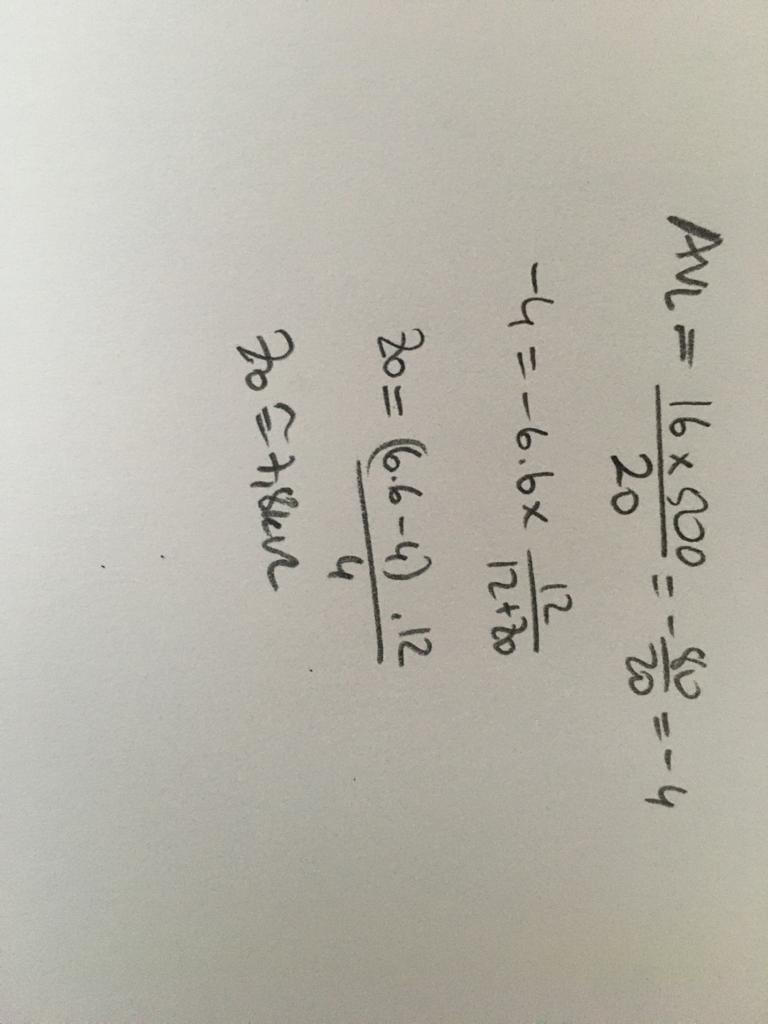 AVL = 16 x 500 / 20 = - 80 / 20 = - 4
-4 = -6.6 x 12 / 12+Z0
Z0 = (6.6 - 4) . 12 / 4
Z0 ≅ 7,8kΩ